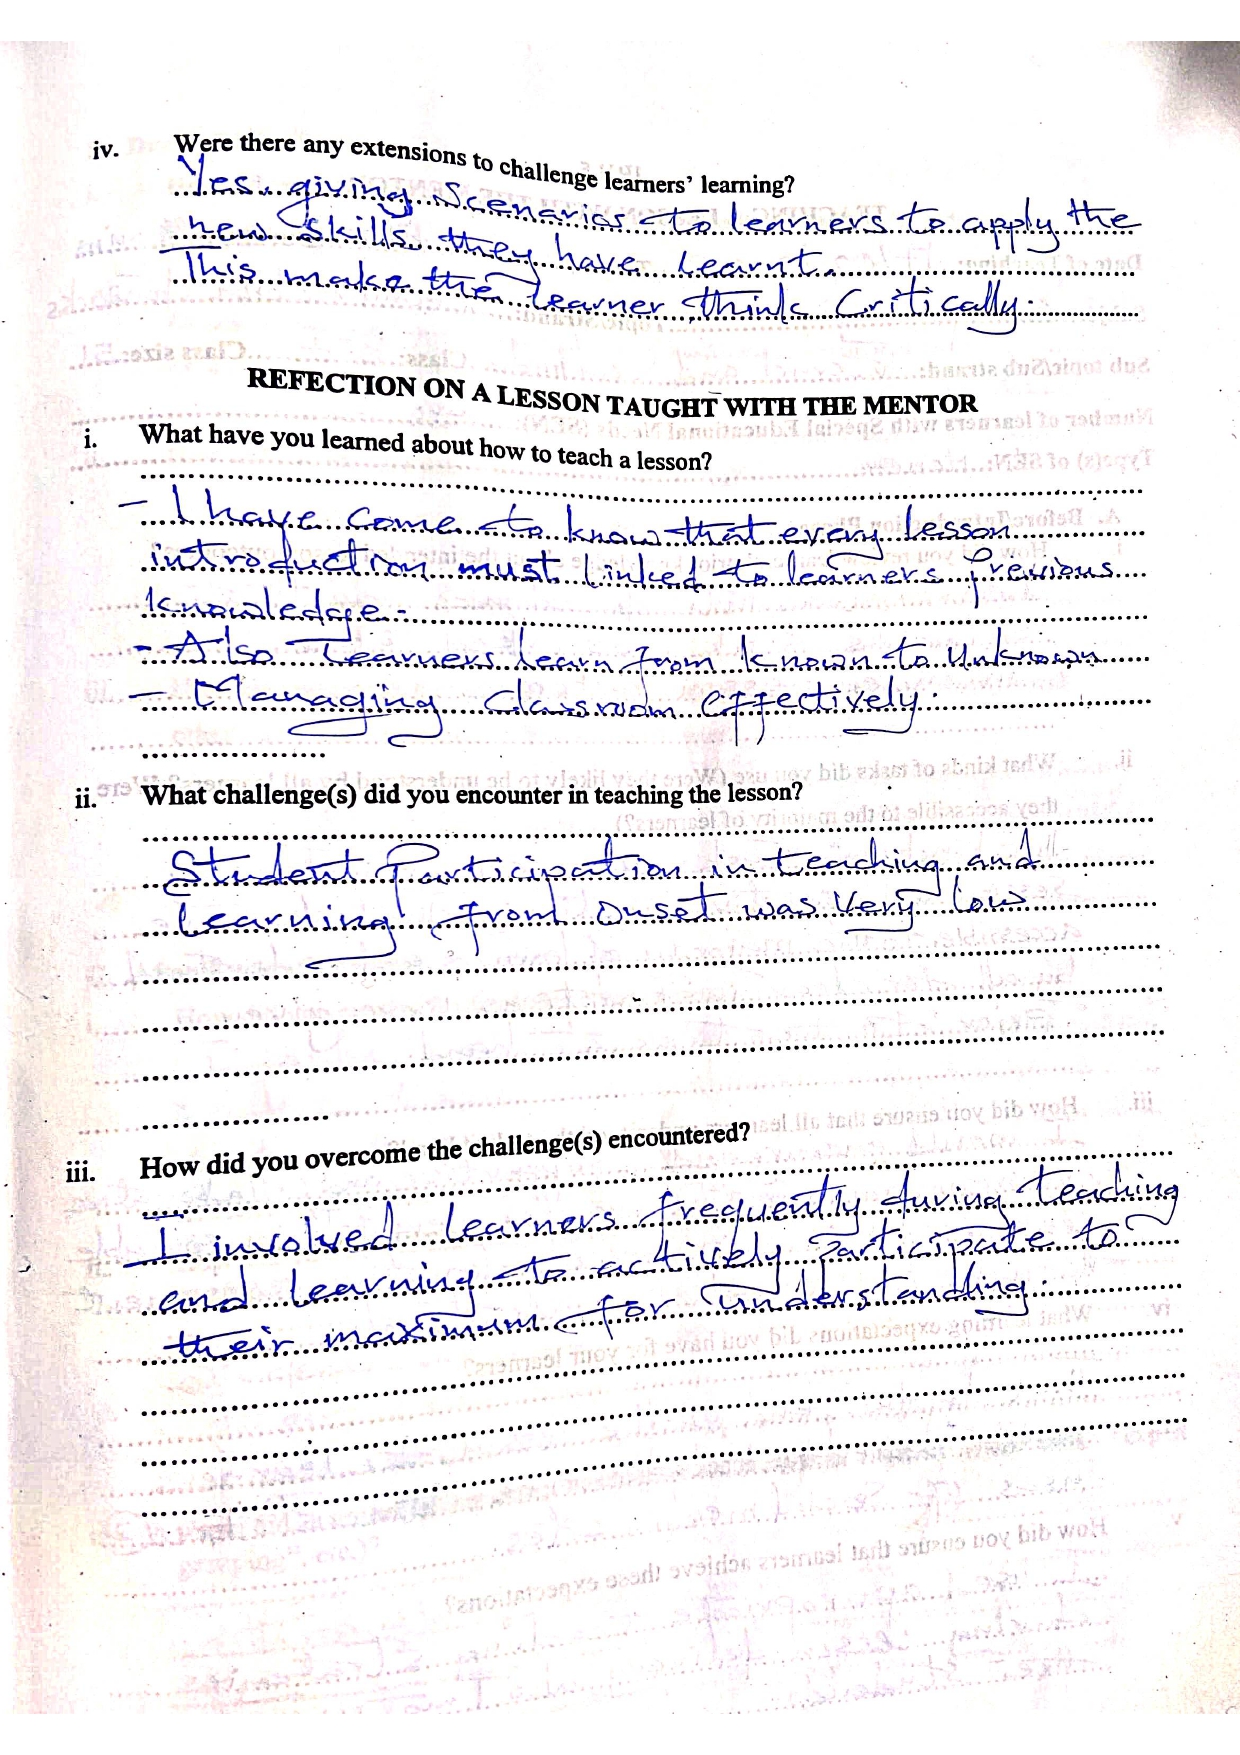 iv. Were there any extensions to challenge learners' learning?
Yes, giving scenarios to learners to apply the
new skills they have learnt.
This make the learner think critically.
REFECTION ON A LESSON TAUGHT WITH THE MENTOR
i. What have you learned about how to teach a lesson?
- I have come to know that every lesson
introduction must linked to learners previous
knowledge.
- Also learners learn from known to unknown
- Managing classroom effectively.
ii. What challenge(s) did you encounter in teaching the lesson?
Student Participation in teaching and
learning from onset was very low
iii. How did you overcome the challenge(s) encountered?
I involved learners frequently during teaching
and learning to actively participate to
their maximum for understanding.